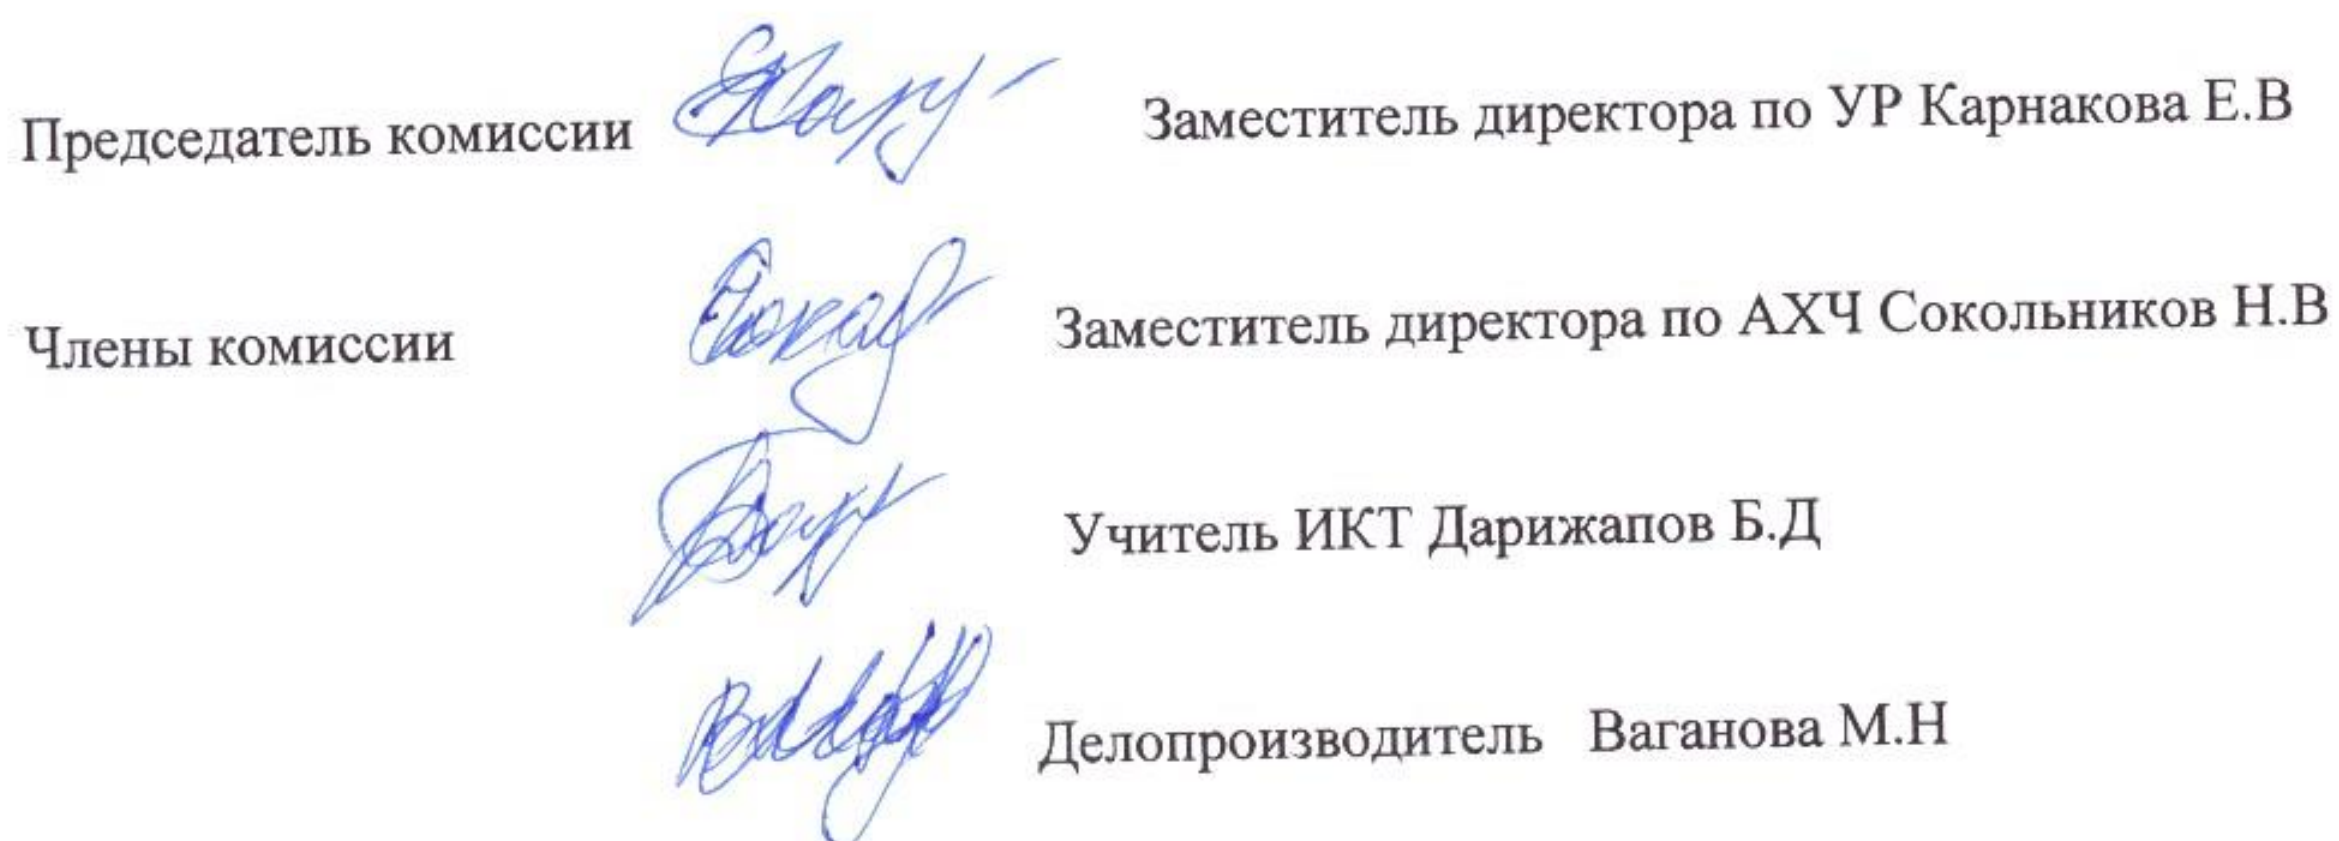 Председатель комиссии Заместитель директора по УР Карнакова Е.В
Члены комиссии Заместитель директора по АХЧ Сокольников Н.В
Учитель ИКТ Дарижапов Б.Д
Делопроизводитель Ваганова М.Н